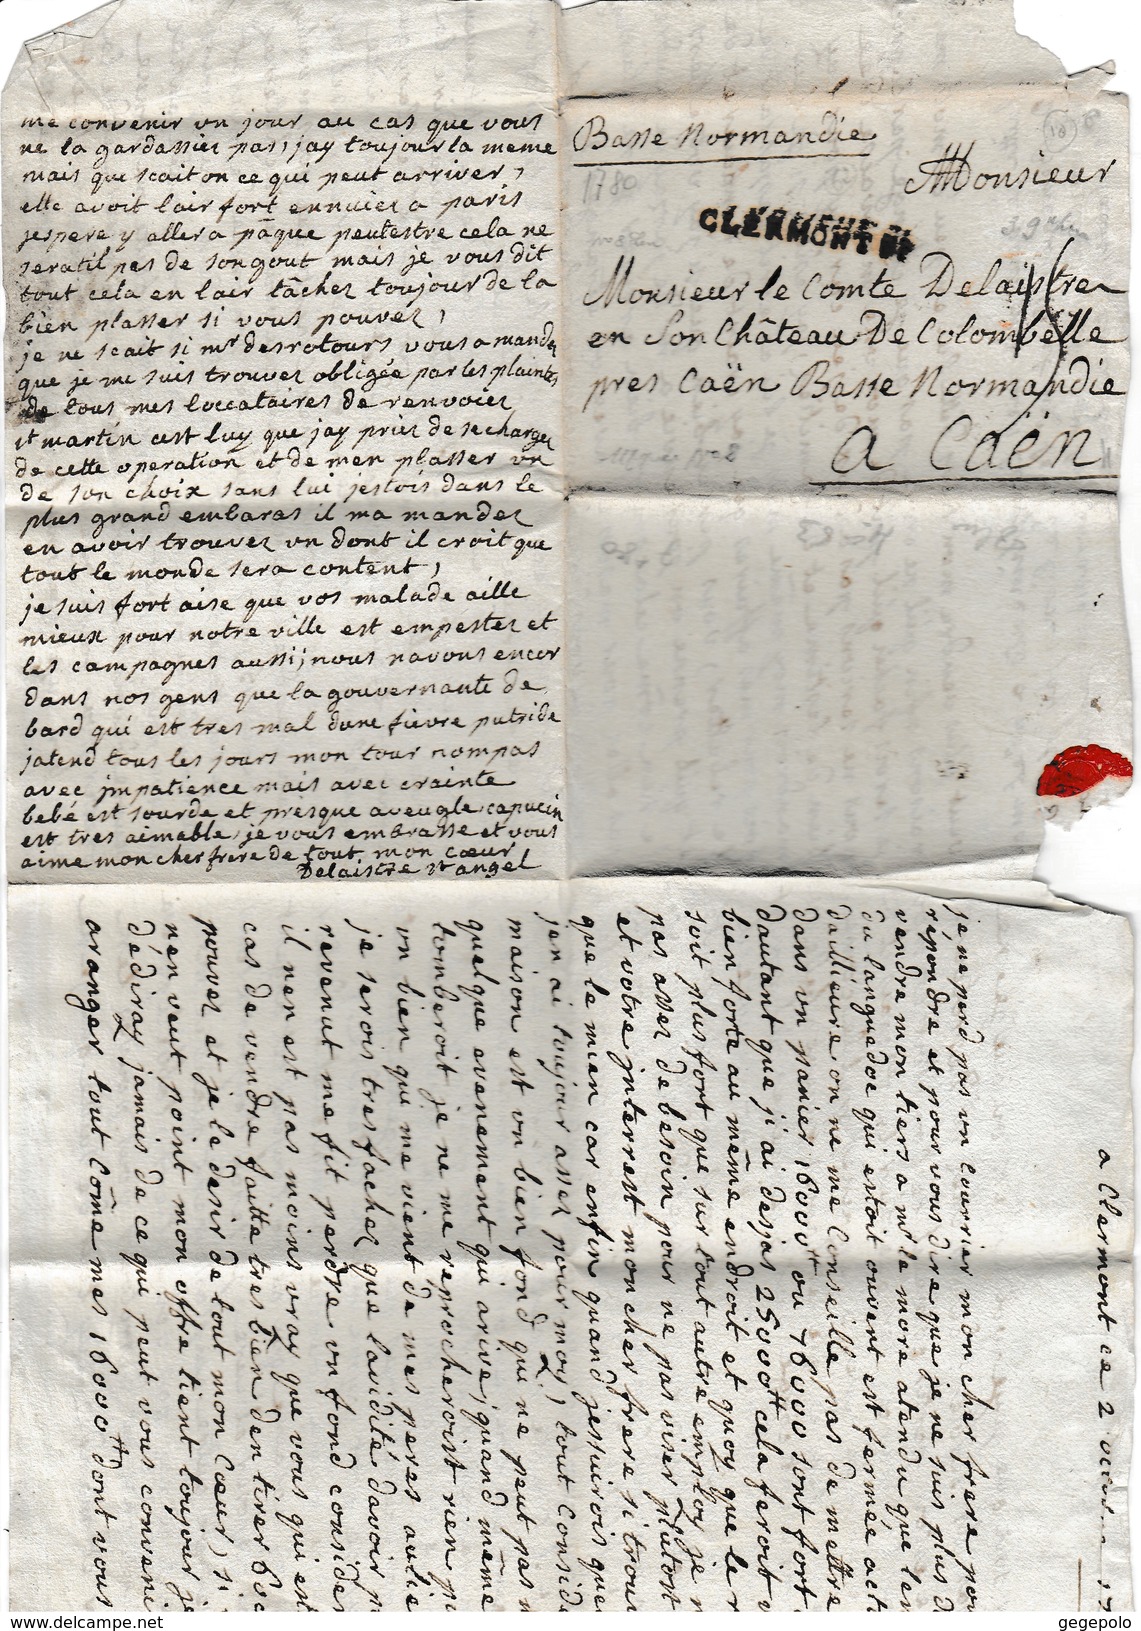 me convenir un jour au cas que vous
ne la gardassiez pas, jay toujour la meme
mais que scait on ce qui peut arriver,
elle avoit lair fort ennuiez a paris
jespere y aller a pâque peutestre cela ne
seratil pas de son gout mais je vous dit
tout cela en lair tâchez toujour de la
bien plasser si vous pouvez,
je ne scait si mr desrotours vous a mandez
que je me suis trouvez obligée par les plaintes
de tous mes loccataires de renvoiez
st martin cest luy que jay priez de se charger
de cette operation et de men plasser un
de son choix sans lui jestois dans le
plus grand embaras il ma mandez
en avoir trouvez un dont il croit que
tout le monde sera content,
je suis fort aise que vos malade aille
mieux pour notre ville est empestez et
les campagnes aussi, nous navons encor
dans nos gens que la gouvernante de
bard qui est tres mal dune fievre putride
jatend tous les jours mon tour nompas
avec impatience mais avec crainte
bebé est sourde et presque aveugle, capucin
est tres aimable, je vous embrasse et vous
aime mon cher frere de tout mon cœur
Delaistre st angel
Basse Normandie
1780
Monsieur
CLERMONT
Monsieur le Comte Delaistre
en Son Château De Colombelle
pres Caën Basse Normandie
a Caën
a Clermont ce 2
je ne perd pas un courrier mon cher frere pou
répondre et pour vous dire que je ne suis plus d
vendre mon tiers a mr le more atendu que le
du languedoc qui estoit ouvert est fermée
dailleure on ne me conseille pas de mettre
dans un panier 16000tt ou 46000 sont fort
dautant que j'ai desjas 25000tt cela feroit
bien forte au même endroit et quoy que le
soit plus fort que sur tout autre employ je n
pas assez de besoin pour ne pas viser plutost
et votre interrest mon cher frere si trou
que le mien car enfin quand jessuirois que
jen ai toujour assez pour moy, tout conside
maison est un bien fond qui ne peut pas
quelque evenement qui arive, quand même
tomberoit je ne me reprocherois rien
un bien qui me vient de mes peres au lie
je serois tres fachez que lavidité davoir
revenut me fit perdre un fond conside
il nen est pas moins vray que vous qui es
cas de vendre faitte tres bien den tirer
pouvez et je le desir de tout mon cœur, si
nen veut point mon offre tient toujour je
dédiray jamais de ce qui peut vous conveni
aranger tout comme mes 16000tt dont vous
gegepolo